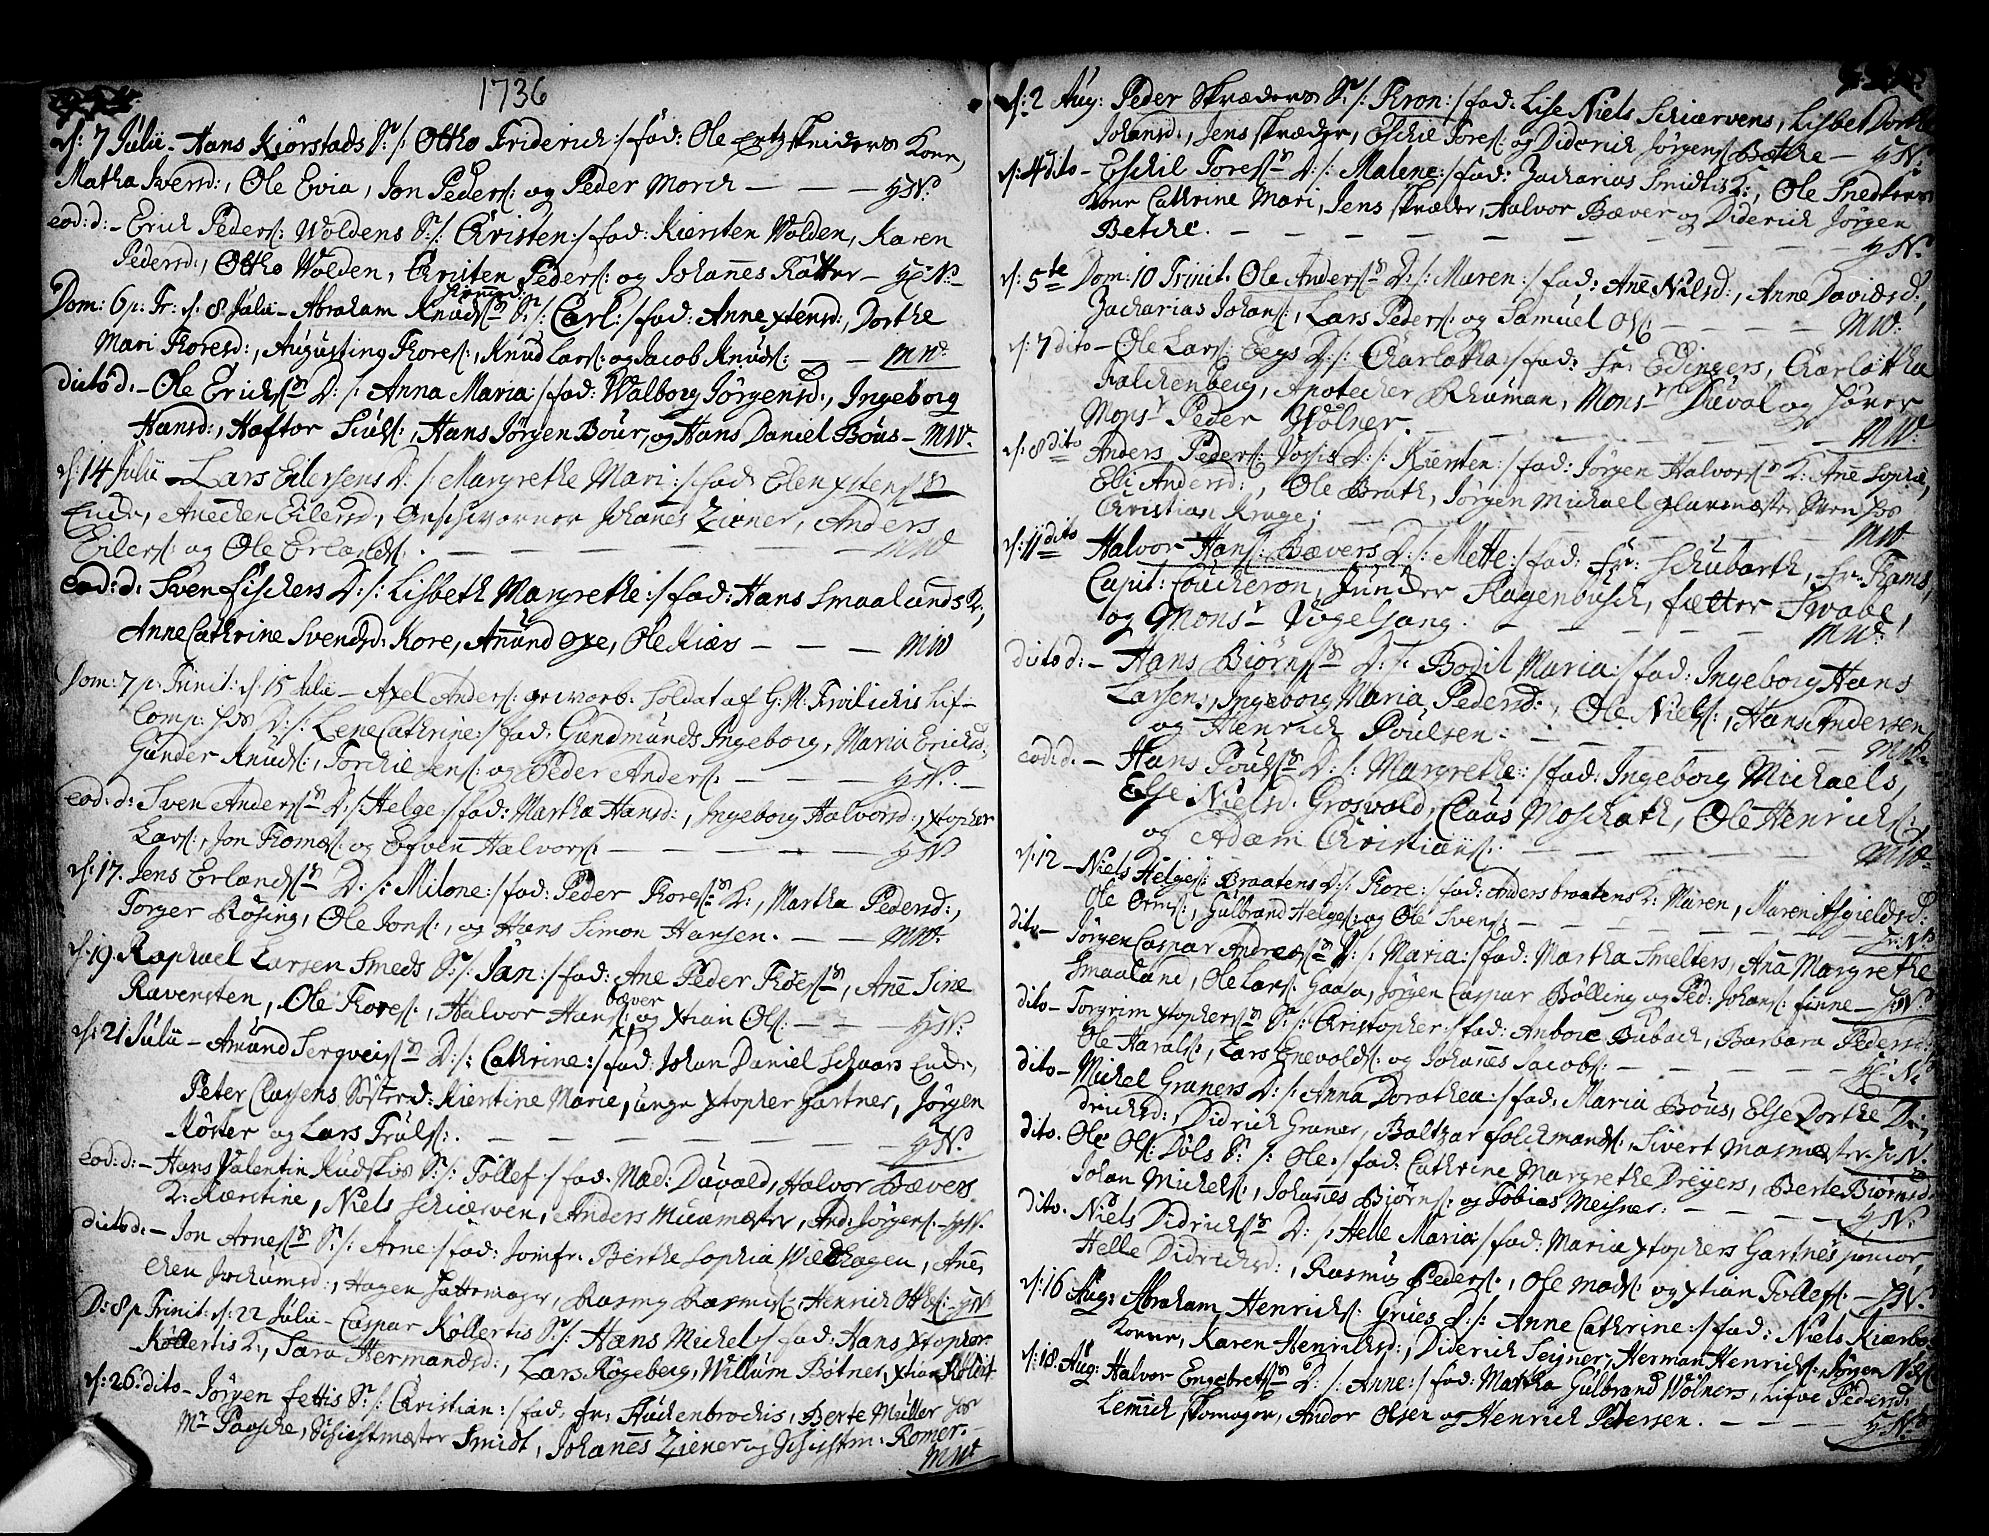 1736
d: 7 Julii - Hans Kiörstads Sn: /: Otho Friderich :/ fad: Ole Ertzskeideres Kone,
Matha Iversd:, Ole Evia, Jon Peders: og Peder Morch — — — HN.
eod: d: - Erich Peders: Woldens Sn: /: Christen :/ fad: Kiersten Wolden, Karen
Pedersd:, Otho Wolden, Christen Peders: og Johañes Katter — HN.
Dom: 6 p: Tr: d: 8 Julii - Abraham Knuds Sn: /: Carl :/ fad: Anne Xtensd:, Dorthe
Mari Thoresd:, Augusting Thores:, Knud Lars: og Jacob Knuds: — — MW.
dicto d: - Ole Erichs: D: /: Anna Maria :/ fad: Walborg Jørgensd:, Ingeborg
Hansd:, Haftor Siuls:, Hans Jörgen Bour, og Hans Daniel Böus — MW.
d: 14 Julii - Lars Eilersens D: /: Margrethe Mari :/ fad: Elen Xtens
Enche, Anechen Eilersd:, Geschworner Johañes Ziener, Anders
Eilers: og Ole Erlands: — — — — MW
eod: d: Sven Fischers D: /: Lisbeth Margrethe :/ fad: Hans Smaalunds K:,
Anne Cathrine Svendsd: Kore, Amund Oxe, Ole Kiærs — — — MW
Dom: 7 p: Trinit: d: 15 Julii - Axel Anders: geworb: Soldat af G. M: Frilichis Lif-
Comp: hos D: /: Lene Cathrine :/ fad: Gundmunds Ingeborg, Maria Ericksd:
Gunder Knuds:, Torchil Jens: og Peder Anders: — — — HN.
eod: d: Sven Anders: D: /: Helge :/ fad: Martha Hansd:, Ingeborg Halvorsd:, Xtopher
Lars:, Jon Thomes: og Even Halvors: — — — HN
d: 17. Jens Erlands D: /: Milone :/ fad: Peder Thores: K:, Martha Pedersd:,
Torger Rösing, Ole Jons:, og Hans Simon Hansen. — — MW.
d: 19. Raphael Larsen Smeds Sn: /: Jan :/ fad: Ane Peder Thoes, Añe Sine
Ravensten, Ole Thores:, Halvor Hans: bæver og Xtian Ols: — — — HN.
d: 21 Julii - Amund Sergveis D: /: Cathrine :/ fad: Johan Daniel Schaars Enche,
Peter Clasens Söster d: Kierstine Marie, unge Xtopher Gartner, Jörgen
Köster og Lars Truls: — — — — HN.
eod: d: - Hans Valentin Kudskis Sn: /: Tollef :/ fad: Mad: Duvald, Halvor Bævers
K: Kierstine, Niels Schierven, Anders Muurmester, And: Jörgens: HN.
dicto d: - Jon Arnes Sn: /: Arne :/ fad: Jomfr: Birthe Sophia Wildhagen, Ane
chen Jochumsd:, Hagen Hattemager, Rasmus Rasmus:, Henrich Otthos: HN
D: 8 p Trinit: d: 22 Julii - Caspar Köllertis Sn: /: Hans Michel :/ fad: Hans Xtopher
Köllertis K:, Sara Hermandsd:, Lars Rögeberg, Willum Bötner, Xtian
d: 26. dito - Jörgen Fettis Sn: /: Christian :/ fad: Fr: Hackenbrochis, Berte Müller hos
Mr Paasche, Schichtmæster Smidt, Johañes Ziener og Schichtm: Romer. —
MW.
d: 2 Aug: Peder Skræders Sn: /: Thron :/ fad: Lise Niels Schiærvens, Lisbet Dorthe
Johansd:, Jens Skræder, Eschil Tores: og Diderich Jørgens: Betche — HN.
d: 4 dito - Eschil Tores D: /: Malene :/ fad: Zacharias Smidtis K:, Ole Snedkers
Kone Cathrine Mari, Jens Skræder, Halvor Bæver og Diderich Jörgen
Betche. — — — — — — HN.
d: 5te Dom: 10 Trinit. Ole Anders D: /: Maren :/ fad: Añe Nilsd:, Anne Davidsd:,
Zacharias Johans:, Lars Peders: og Samuel Ols: — — — MW.
d: 7 dito - Ole Lars: Eegs D: /: Charlotha :/ fad: Fr: Edingers, Charlotha
Falchenberg, Apotecher Rhuman, Monsr Duval og
Monsr Peder Wölner. — — — — MW.
d: 8 dito Anders Peders: D: /: Kiersten :/ fad: Jörgen Halvors K: Añe Sophie,
Eli Andersd:, Ole Brath, Jörgen Michael Glarmæster Sven hos
Christian Kruge; — — — — MW
d: 11 dito Halvor Hans: Bævers D: /: Mette :/ fad: Fr: Schubarth, Fr: Thams,
Capit: Coucheron, Junder Plagenbusch, fætter Swabe,
og Monsr Vogelsang. — — — — MW.
dicto d: - Hans Biörns D: /: Bodil Maria :/ fad: Ingeborg Hans
Larsens, Ingeborg Maria Pedersd:, Ole Niels:, Hans Andersen
og Henrich Poulsen. — — — — MW.
eod: d: - Hans Pouls D: /: Margrethe :/ fad: Ingeborg Michaels,
Else Nielsd: Grosvold, Claus Moschath, Ole Henrichs:
og Adam Christians: — — — — MW.
d: 12 - Niels Helges: Braatens D: /: Thore :/ fad: Anders braatens K: Maren, Maren Asgieldsd:
Ole Orms:, Gulbrand Helges: og Ole Svens: — — — HN.
dito - Jörgen Caspar Andreæs D: /: Maria :/ fad: Martha Smelters, Aña Margrethe
Smaalane, Ole Lars: Gaasa, Jörgen Caspar Bölling og Ped: Johans: Finne — HN
dito - Torgrim Xtophers Sn: /: Christopher :/ fad: Anbore Bubach, Barbara Pedersd:
Ole Harals:, Lars Enevolds: og Johañes Jacobs: — — — HN.
dito - Michel Graners D: /: Anna Dorothea :/ fad: Maria Böus, Else Dorthe Di-
drichsd:, Didrich Graner, Baltzar Folchmands:, Sivert Masmæster. HN.
dito. Ole Ols: Döls Sn: /: Ole :/ fad: Cathrine Margrethe Dreyers, Berte Biörnsd:
Johan Michels:, Johañes Biörns: og Tobias Meisner. — — — HN.
dito. Niels Didrichs D: /: Helle Maria :/ fad: Maria Xtophers Gartnes junior,
Helle Didrichsd:, Rasmus Peders:, Ole Mads: og Xtian Tollefs: — HN.
d: 16 Aug: Abraham Henrichs: Grues D: /: Anne Cathrine :/ fad: Niels Kiærbo
Kone, Karen Henrichsd:, Diderich Seigner, Herman Henrichs:, Jörgen Nils:
d: 18. Aug: Halvor Engebrets D: /: Anne :/ fad: Martha Gulbrand Wölners, Lisve Pedersd:
Lemich Skomager, Andor Olsen og Henrich Petersen. — — — HN.